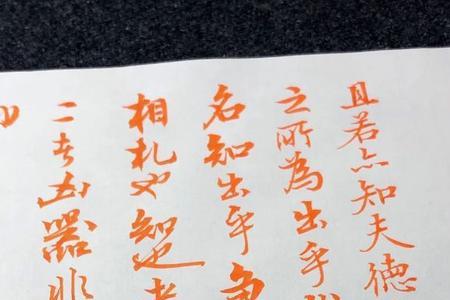 且若亦知夫德
之所為出乎
名知出乎争
相札也知也者
二者凶器非